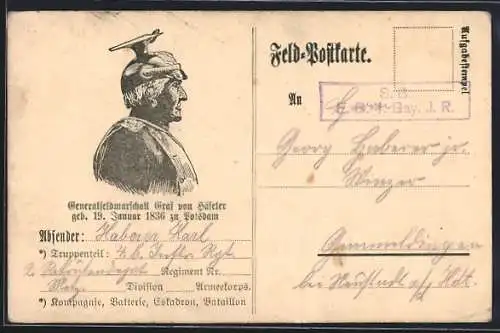 Generalfeldmarschall Graf von Häseler
geb. 19. Januar 1836 zu Potsdam
Absender: Haberer Karl
*) Truppenteil: 4. b. Inftr. Rgt.
2. Rekrutendepot Regiment Nr.
Metz Division Armeekorps.
*) Kompagnie, Batterie, Eskadron, Bataillon
Feld-Postkarte.
Aufgabestempel
An
S. B.
Bay. J. R.
Georg Haberer jr.
Winzer
Gimmeldingen
bei Neustadt a/ Hdt.